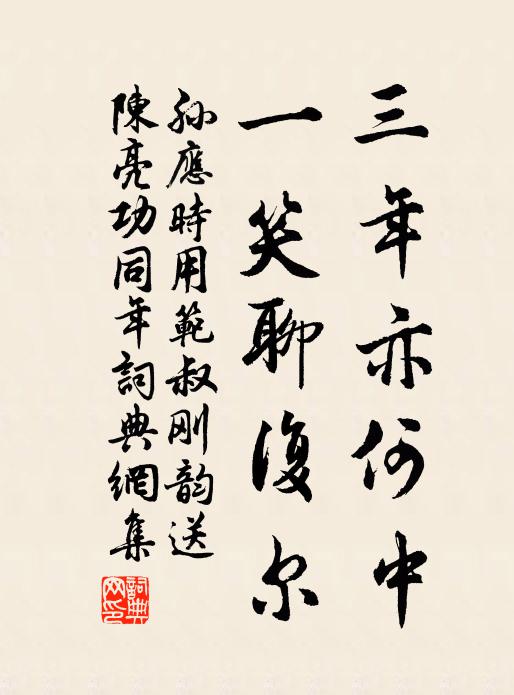 三年亦何中
一笑聊復尔
孙應時用範叔刚韵送
陳亮功同年詞典網集
詞典网印